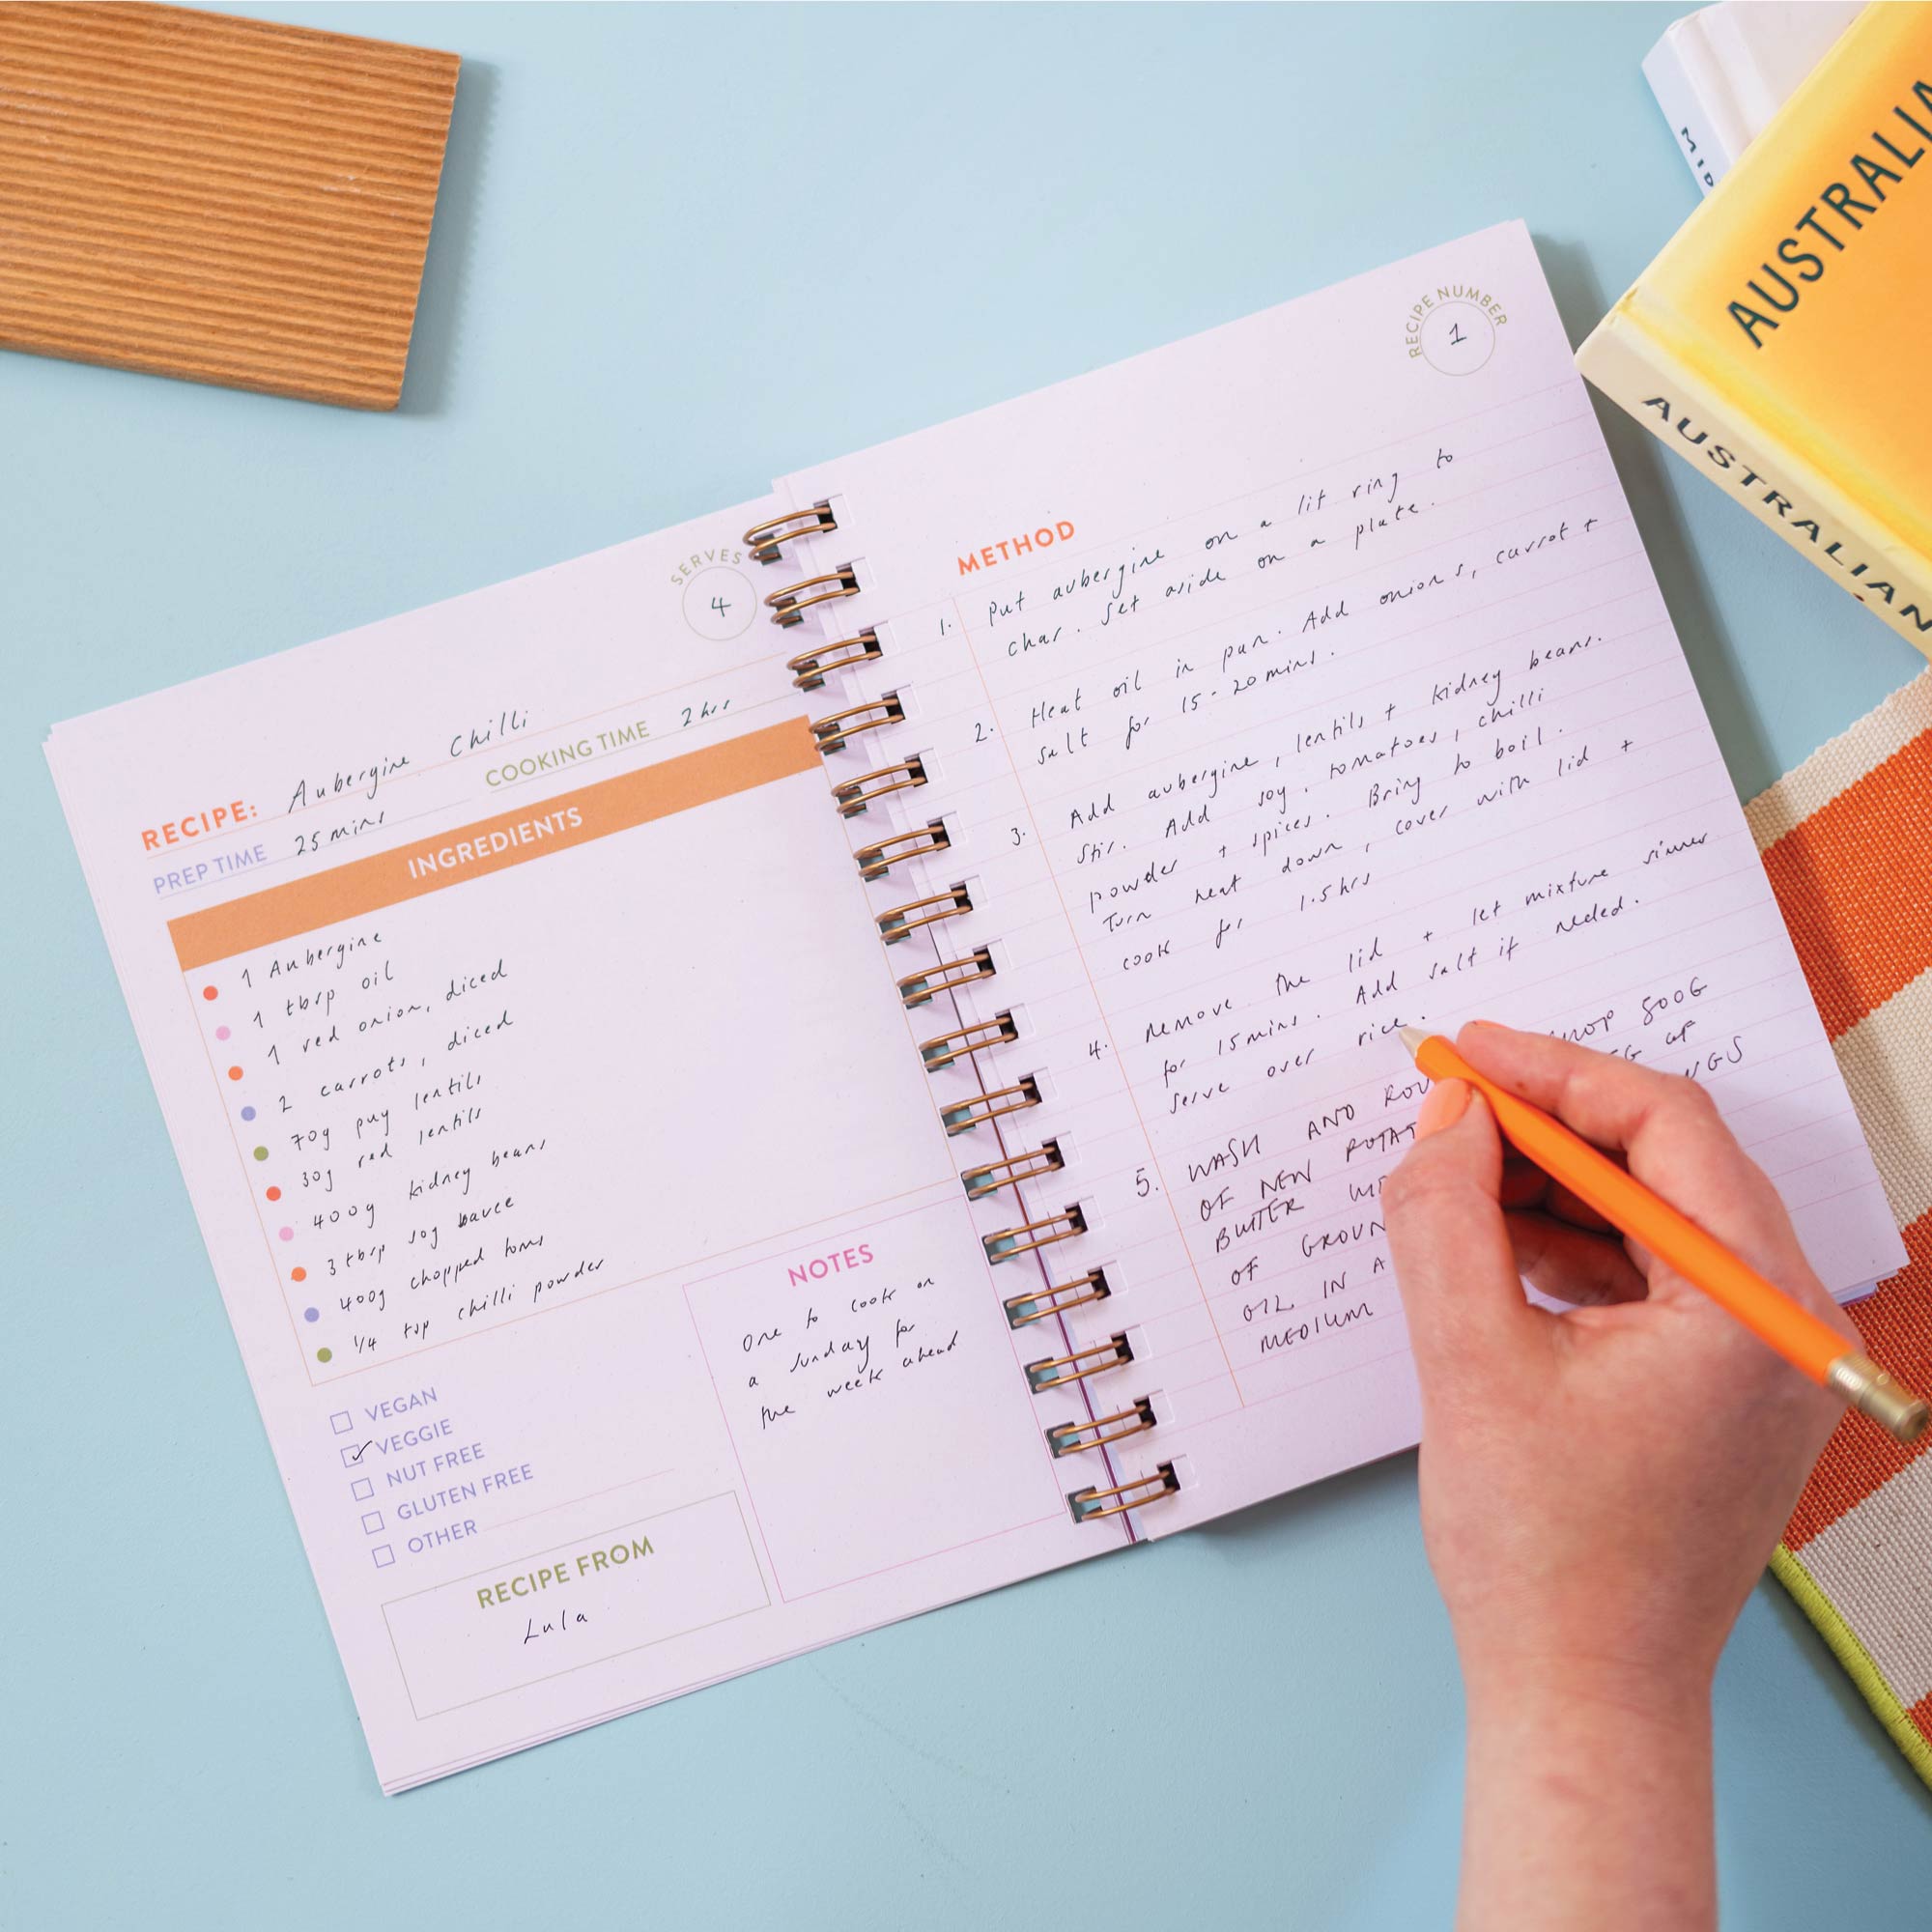 SERVES
4
RECIPE: Aubergine Chilli
PREP TIME 25 mins COOKING TIME 2 hrs
INGREDIENTS
1 Aubergine
1 tbsp oil
1 red onion, diced
2 carrots, diced
70g puy lentils
30g red lentils
400g kidney beans
3 tbsp soy sauce
400g chopped toms
1/4 tsp chilli powder
VEGAN
VEGGIE
NUT FREE
GLUTEN FREE
OTHER
NOTES
One to cook on
a Sunday for
the week ahead
RECIPE FROM
Lula
RECIPE NUMBER
1
METHOD
1. Put aubergine on a lit ring to
char. Set aside on a plate.
2. Heat oil in pan. Add onions, carrot +
salt for 15-20 mins.
3. Add aubergine, lentils + kidney beans.
Stir. Add soy, tomatoes, chilli
powder + spices. Bring to boil.
Turn heat down, cover with lid +
cook for 1.5 hrs
4. Remove the lid + let mixture simmer
for 15 mins. Add salt if needed.
Serve over rice.
5. WASH AND 800G
OF NEW
BUTTER
OF
OIL IN A
MEDIUM
AUSTRALIA
AUSTRALIAN